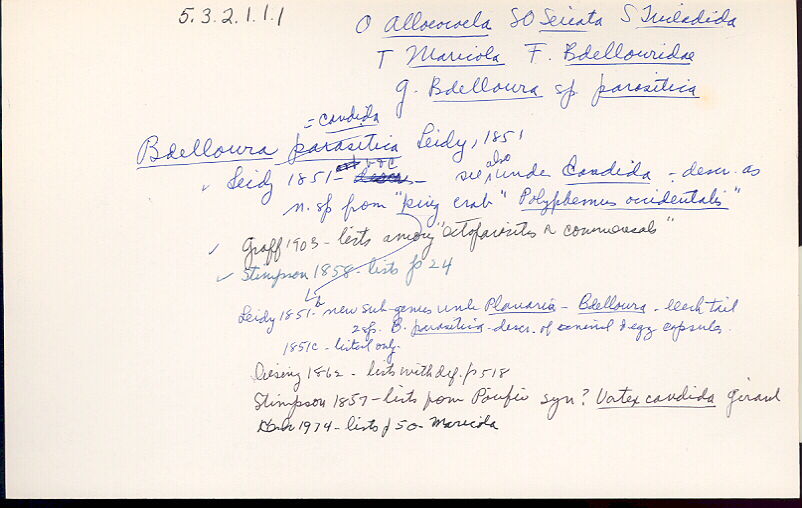 5.3.2.1.1.1
O Alloeocoela SO Seriata S Tricladida
T Maricola F. Bdellouridae
g. Bdelloura sp parasitica
= candida
Bdelloura parasitica Leidy, 1851
Leidy 1851- see also under Candida - descr. as
n. sp from "king crab" Polyphemus occidentalis"
Graff 1903 - lists among "ectoparasites & commensals"
Stimpson 1858 - lists p 24
Leidy 1851 - new sub-genus under Planaria - Bdelloura - leech tail
2 sp. B. parasitica - descr. of animal & egg capsules.
1851c - listed only.
Diesing 1862 - lists with diag. p 518
Stimpson 1857 - lists from Pacific syn? Vatex candida Girard
1974 - lists p 50 - Maricola